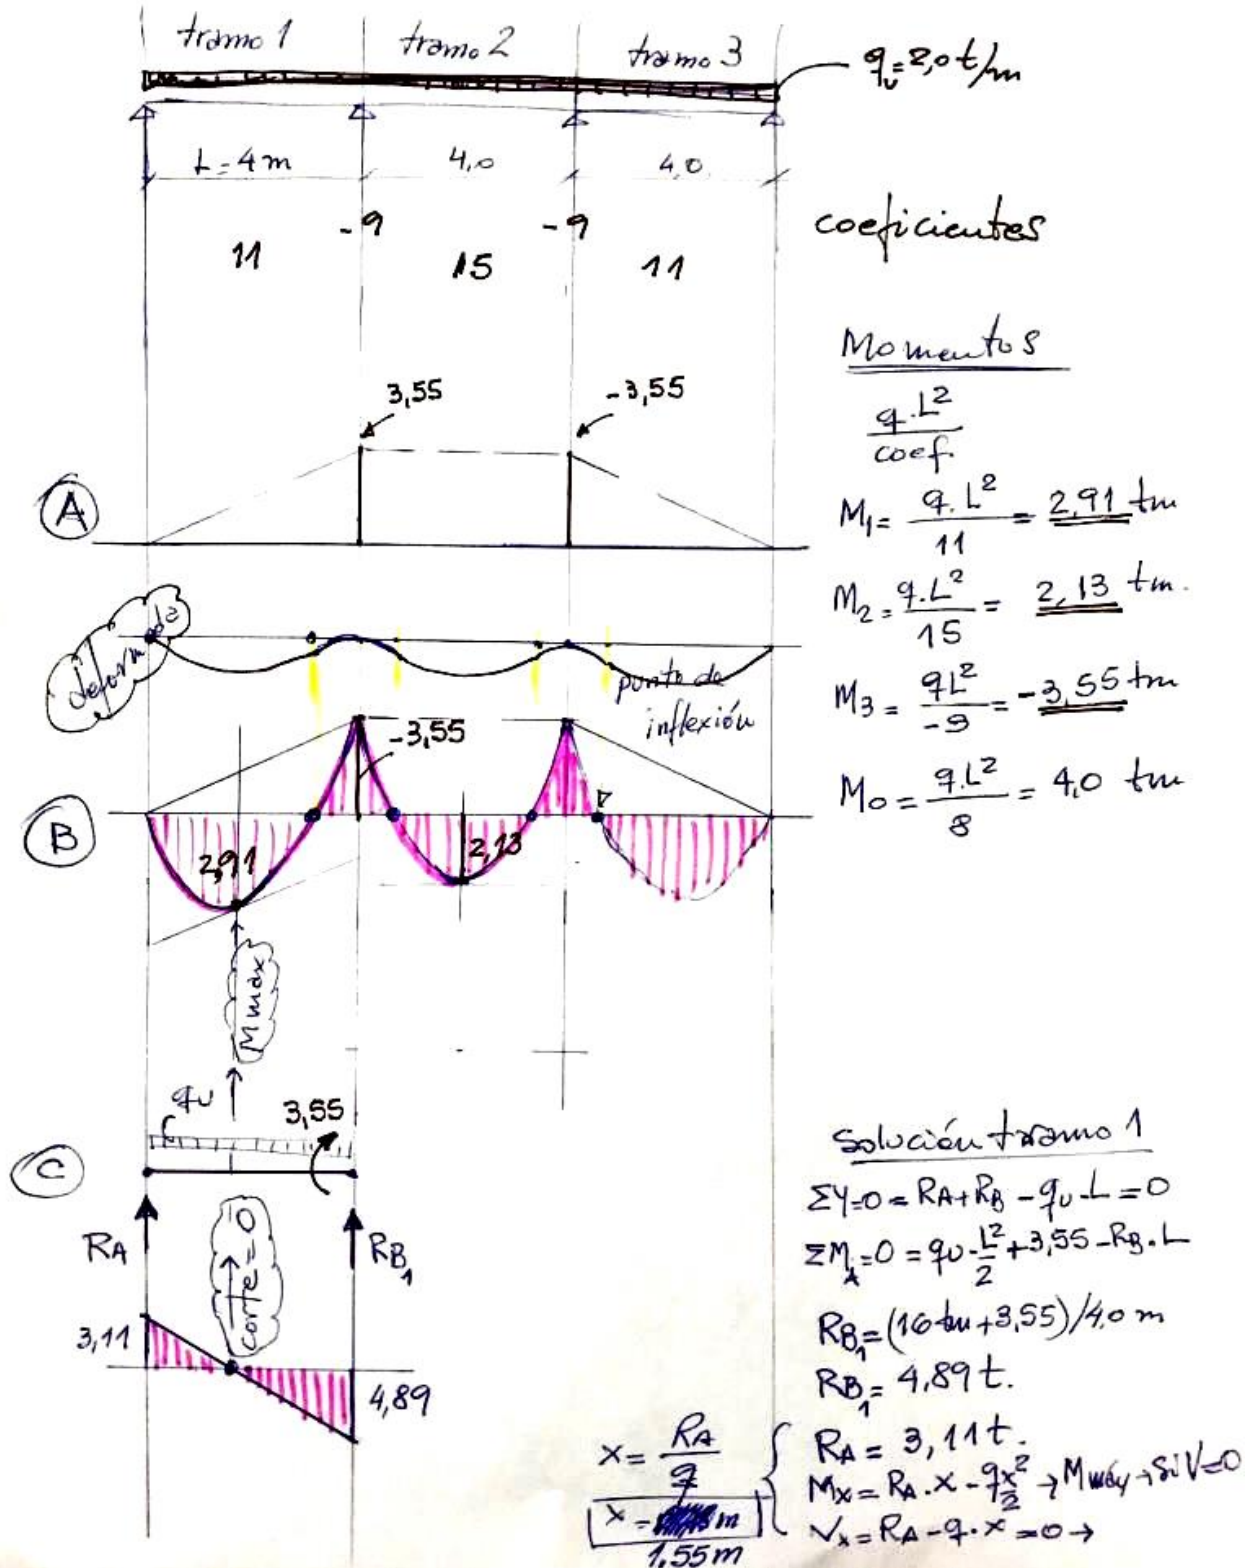 tramo 1
tramo 2
tramo 3
qu = 2,0 t/m
L = 4 m
4,0
4,0
-9
-9
coeficientes
11
15
11
Momentos
q.L²/coef.
3,55
-3,55
A
M1 = q.L²/11 = 2,91 tm
M2 = q.L²/15 = 2,13 tm.
M3 = qL²/-9 = -3,55 tm
Mo = q.L²/8 = 4,0 tm
deformada
punto de
inflexión
-3,55
B
2,91
2,13
Mmáx
qu
3,55
C
RA
RB1
corte = 0
3,11
4,89
Solución tramo 1
ΣY=0 = RA + RB - qu.L = 0
ΣMA=0 = qu.L²/2 + 3,55 - RB.L
RB1 = (16 tm + 3,55)/4,0 m
RB1 = 4,89 t.
RA = 3,11 t.
Mx = RA.x - qx²/2 → Mmáx → Si V=0
Vx = RA - q.x = 0 →
x = RA/q
x = m
1,55 m